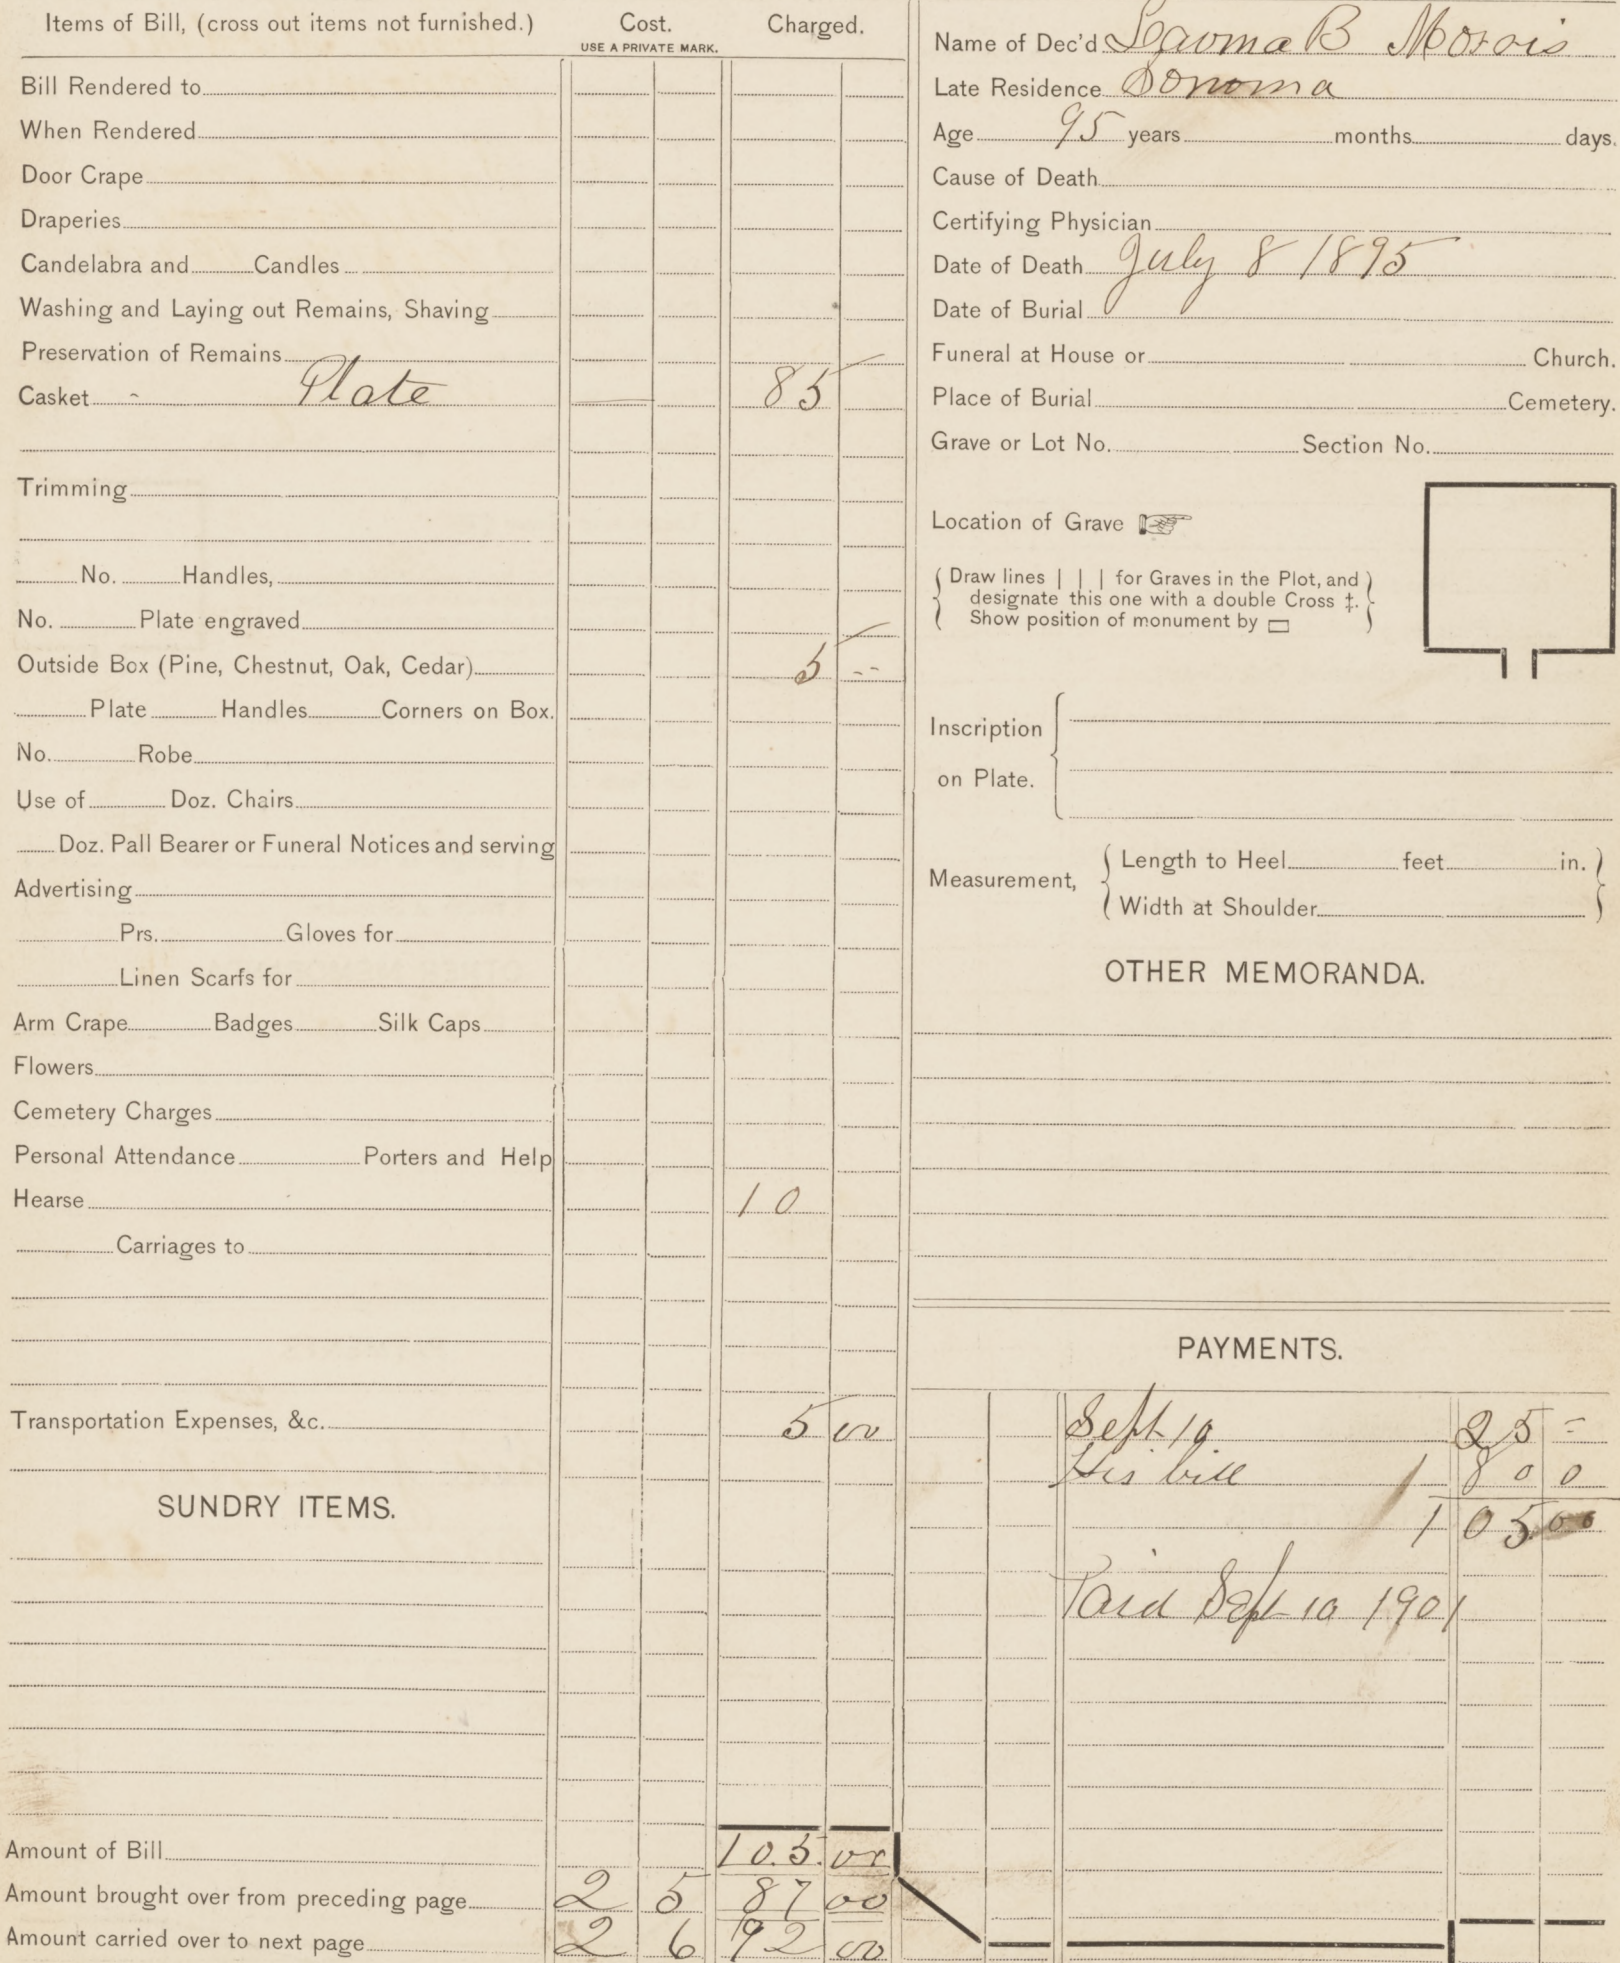 Items of Bill, (cross out items not furnished.) Cost. Charged.
USE A PRIVATE MARK.
Bill Rendered to
When Rendered
Door Crape
Draperies
Candelabra and Candles
Washing and Laying out Remains, Shaving
Preservation of Remains
Casket Plate 85
Trimming
No. Handles,
No. Plate engraved
Outside Box (Pine, Chestnut, Oak, Cedar) 5 --
Plate Handles Corners on Box.
No. Robe
Use of Doz. Chairs
Doz. Pall Bearer or Funeral Notices and serving
Advertising
Prs. Gloves for
Linen Scarfs for
Arm Crape Badges Silk Caps
Flowers
Cemetery Charges
Personal Attendance Porters and Help
Hearse 10
Carriages to
Transportation Expenses, &c. 5 00
SUNDRY ITEMS.
Amount of Bill 105.00
Amount brought over from preceding page 2 5 87 00
Amount carried over to next page 2 6 92 00
Name of Dec'd B Morris
Late Residence Sonoma
Age 95 years months days.
Cause of Death
Certifying Physician
Date of Death July 8 1895
Date of Burial
Funeral at House or Church.
Place of Burial Cemetery.
Grave or Lot No. Section No.
Location of Grave
Draw lines | | | for Graves in the Plot, and
designate this one with a double Cross ‡.
Show position of monument by
Inscription
on Plate.
Measurement,
Length to Heel feet in.
Width at Shoulder
OTHER MEMORANDA.
PAYMENTS.
Sept 10 25 =
His bill 80 0
105 00
Paid Sept 10 1901